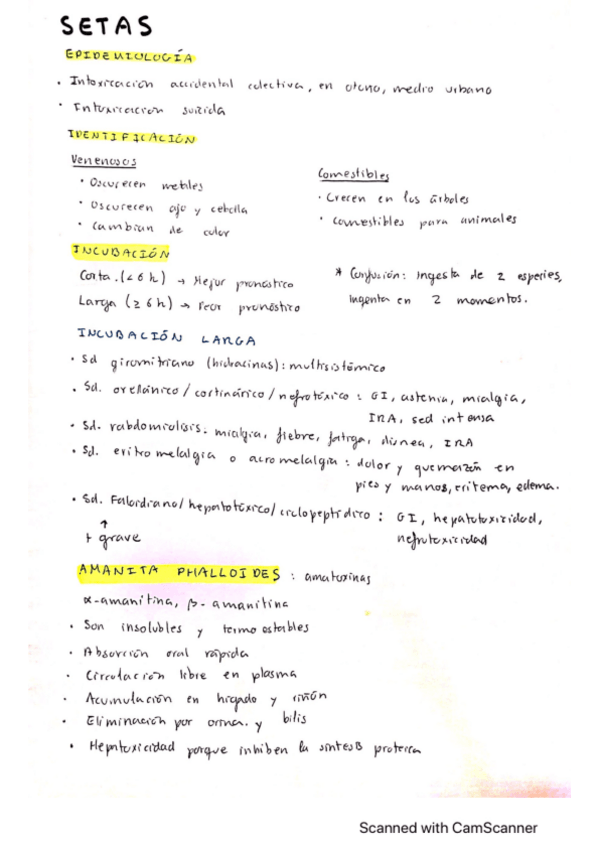 SETAS
EPIDEMIOLOGÍA
· Intoxicación accidental colectiva, en otoño, medio urbano
· Intoxicación suicida
IDENTIFICACIÓN
Venenosos
· Oscurecen metales
· Oscurecen ajo y cebolla
· Cambian de color
Comestibles
· Crecen en los árboles
· Comestibles para animales
INCUBACIÓN
Corta (< 6 h) → Mejor pronóstico
Larga (≥ 6 h) → Peor pronóstico
* Confusión: Ingesta de 2 especies,
ingesta en 2 momentos.
INCUBACIÓN LARGA
· Sd giromitriano (hidracinas): multisistémico
· Sd. orellánico / cortinárico / nefrotóxico: GI, astenia, mialgia,
IRA, sed intensa
· Sd. rabdomiolisis: mialgia, fiebre, fatiga, disnea, IRA
· Sd. eritromelalgia o acromelalgia: dolor y quemazón en
pies y manos, eritema, edema.
· Sd. Faloidiano / hepatotóxico / ciclopeptídico: GI, hepatotoxicidad,
nefrotoxicidad
↑
+ grave
AMANITA PHALLOIDES: amatoxinas
α-amanitina, β-amanitina
· Son insolubles y termoestables
· Absorción oral rápida
· Circulación libre en plasma
· Acumulación en hígado y riñón
· Eliminación por orina y bilis
· Hepatoxicidad porque inhiben la síntesis proteica
Scanned with CamScanner